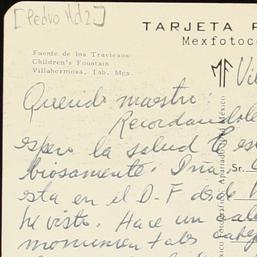 [Pedro Hdz]
TARJETA P
Mexfotoc
Fuente de los Traviesos
Children's Fountain
Villahermosa, Tab. Mex.
MF Vi
Querido maestro:
Recordandole
espero la salud le es
biosamente.
Sr.
esta en el D-F desde
he visto. Hace un cal
monumental